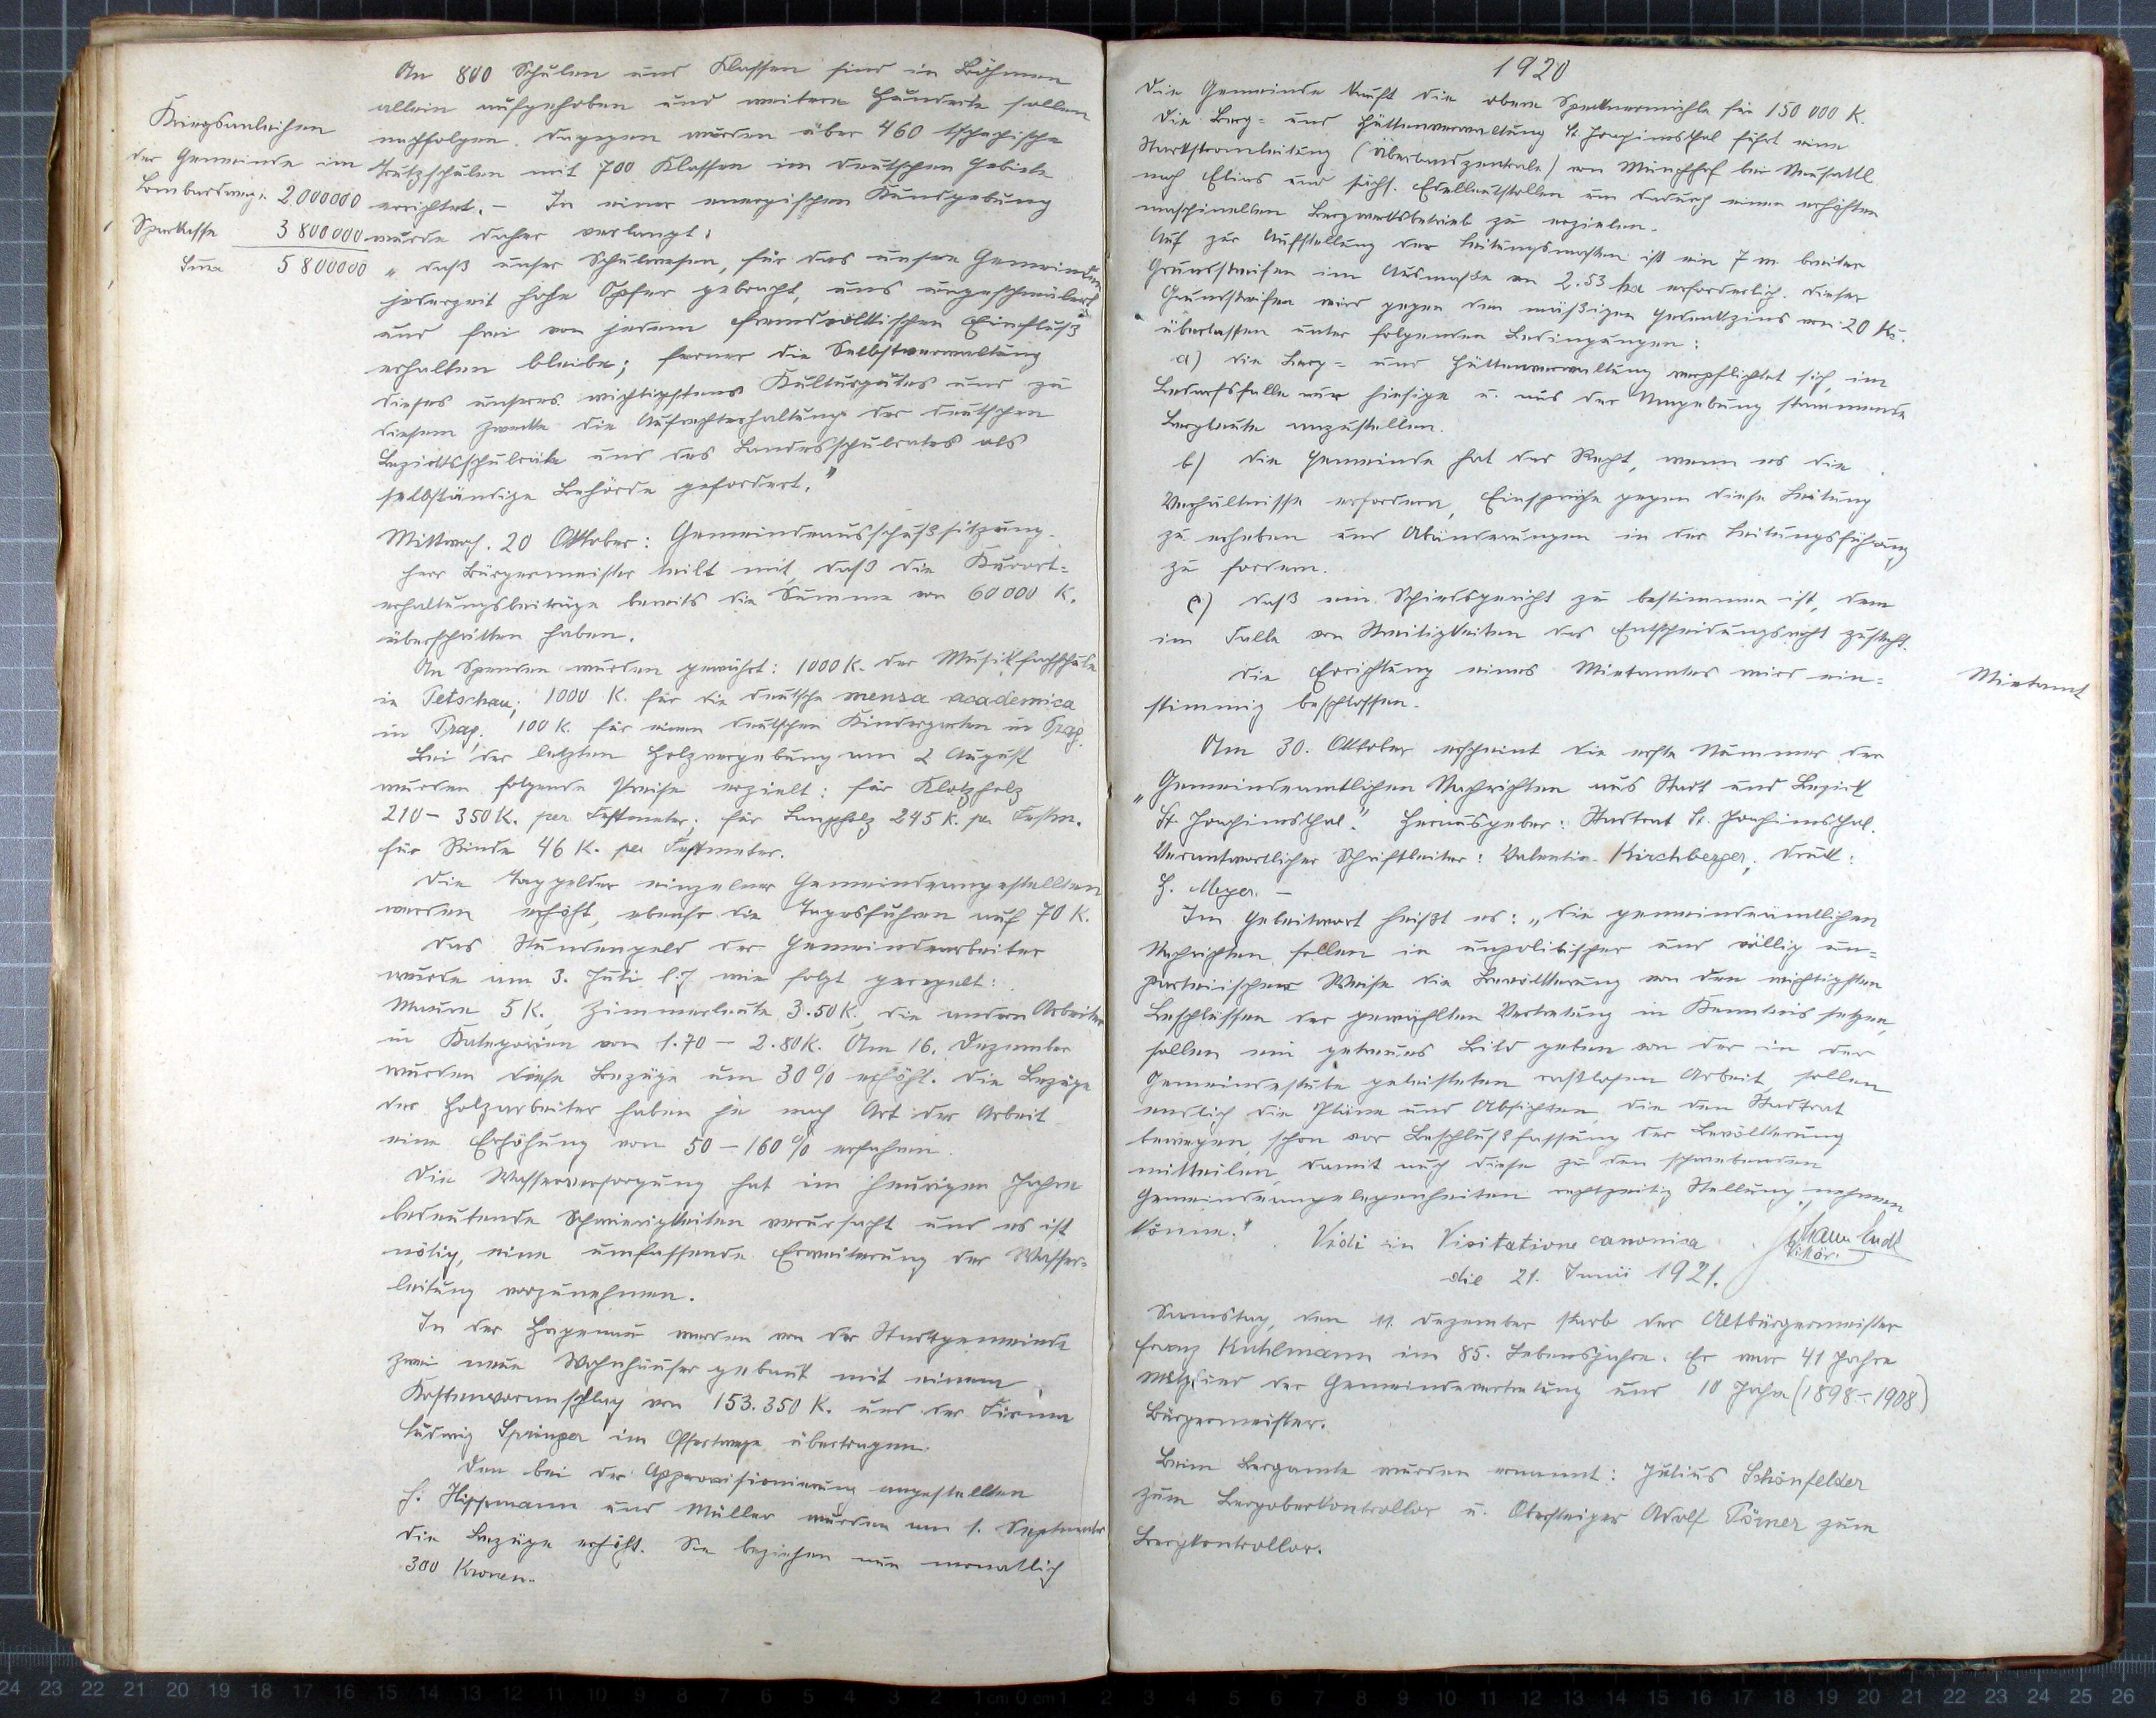 An 800 Schulen und Klassen sind in Böhmen
allein aufgehoben und weitere Hunderte sollen
nachfolgen. Dagegen wurden über 460 tschechische
Trutzschulen mit 700 Klassen im deutschen Gebiete
errichtet. – In einer energischen Kundgebung
wurde daher verlangt:
„daß unser Schulwesen, für das unsere Gemeinden
jederzeit hohe Opfer gebracht, uns ungeschmälert
und frei von jedem fremdvölkischen Einfluß
erhalten bleibe; ferner die Selbstverwaltung
dieses unseres wichtigsten Kulturgutes und zu
diesem Zwecke die Aufrechterhaltung der deutschen
Bezirksschulräte und des Landesschulrates als
selbständige Behörde gefordert."
Kriegsanleihen
der Gemeinde im
Lombardweg: 2,000000
Sparkassa 3 800 000
Suma 5 800000
Mittwoch. 20 Oktober: Gemeindeausschußsitzung.
Herr Bürgermeister teilt mit, daß die Kurort=
erhaltungsbeiträge bereits die Summe von 60 000 K.
überschritten haben.
An Spenden wurden gewährt: 1000 K. der Musikfachschule
in Petschau; 1000 K. für die deutsche mensa academica
in Prag. 100 K. für einen deutschen Kindergarten in Prag.
Bei der letzten Holzvergebung am 2 August
wurden folgende Preise erzielt: für Klotzholz
210 – 350 K. per Festmeter; für Langholz 245 K. per Festm.
für Rinde 46 K. per Festmeter.
Die Taggelder einzelner Gemeindeangestellten
werden erhöht, ebenso die Tagesfuhren auf 70 K.
Das Stundengeld der Gemeindearbeiter
wurde am 3. Juli l. J wie folgt geregelt:
Maurer 5 K., Zimmerleute 3.50 K., die andern Arbeiter
in Kategorien von 1.70 – 2.80 K. Am 16. Dezember
wurden diese Bezüge um 30% erhöht. Die Bezüge
der Holzarbeiter haben je nach Art der Arbeit
eine Erhöhung von 50 – 160% erfahren.
Die Wasserversorgung hat im heurigen Jahre
bedeutende Schwierigkeiten verursacht und es ist
nötig, eine umfassende Erweiterung der Wasser=
leitung vorzunehmen.
In der Hagenau werden von der Stadtgemeinde
zwei neue Wohnhäuser gebaut mit einem
Kostenvoranschlag von 153.350 K. und der Firma
Ludwig Springer im Offertwege übertragen.
Den bei der Approvisionierung angestellten
H. Hissmann und Müller wurden am 1. September
die Bezüge erhöht. Sie beziehen nun monatlich
300 Kronen.
1920
Die Gemeinde kauft die obere Spornermühle für 150 000 K.
Die Berg= und Hüttenverwaltung St. Joachimsthal führt eine
Starkstromleitung (Überlandzentrale) von Münchhof bei Neusattl
nach Elias und sächs. Edelleutstollen um dadurch einen erhöhten
maschinellen Bergwerksbetrieb zu erzielen.
Auf zur Aufstellung der Leitungsmasten ist ein 7 m breiter
Grundstreifen im Ausmaße von 2.53 ha erforderlich. Dieser
Grundstreifen wird gegen den mäßigen Pachtzins von 20 K.
überlassen unter folgenden Bedingungen:
a) die Berg= und Hüttenverwaltung verpflichtet sich, im
Bedarfsfalle nur hiesige u. aus der Umgebung stammende
Bergleute anzustellen.
b) die Gemeinde hat das Recht, wenn es die
Verhältnisse erfordern, Einsprüche gegen diese Leitung
zu erheben und Abänderungen in der Leitungsführung
zu fordern.
c) daß ein Schiedsgericht zu bestimmen ist, dem
im Falle von Streitigkeiten das Entscheidungsrecht zusteht.
Die Errichtung eines Mietamtes wird ein=
stimmig beschlossen.
Mietamt
Am 30. Oktober erscheint die erste Nummer der
„Gemeindeamtlichen Nachrichten aus Stadt und Bezirk
St. Joachimsthal." Herausgeber: Stadtrat St. Joachimsthal.
Verantwortlicher Schriftleiter: Valentin Kirchberger; Druck:
H. Meyer. –
Im Geleitwort heißt es: „Die gemeindeämtlichen
Nachrichten sollen in unpolitischer und völlig un=
parteiischer Weise die Bevölkerung von den wichtigsten
Beschlüssen der gewählten Vertretung in Kenntnis setzen,
sollen ein getreues Bild geben von der in der
Gemeindestube geleisteten rastlosen Arbeit, sollen
endlich die Pläne und Absichten, die den Stadtrat
bewegen, schon vor Beschlußfassung der Bevölkerung
mitteilen, damit auch diese zu den schwebenden
Gemeindeangelegenheiten rechtzeitig Stellung nehmen
könne."
Vidi in Visitatione canonica
Vikär.
die 21. Junii 1921.
Samstag, den 11. Dezember starb der Altbürgermeister
Franz Kuhlmann im 85. Lebensjahre. Er war 41 Jahre
Mitglied der Gemeindevertretung und 10 Jahre (1898 – 1908)
Bürgermeister.
Beim Bergamte wurden ernannt: Julius Schönfelder
zum Bergoberkontrollor u. Obersteiger Adolf Pörner zum
Bergkontrollor.